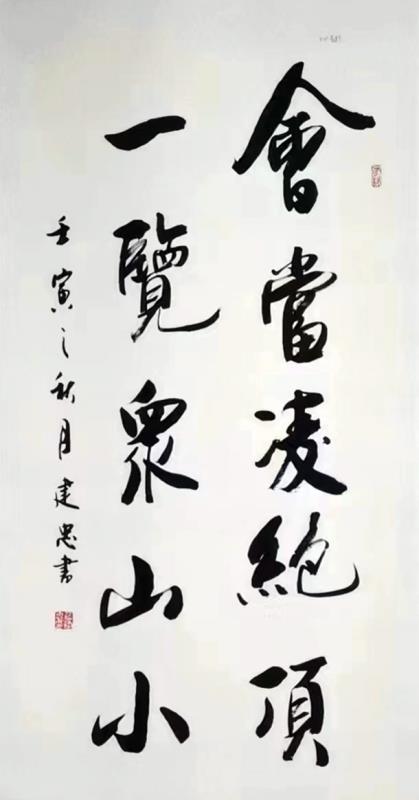 會當凌絕頂
一覽衆山小
壬寅之秋月建忠書